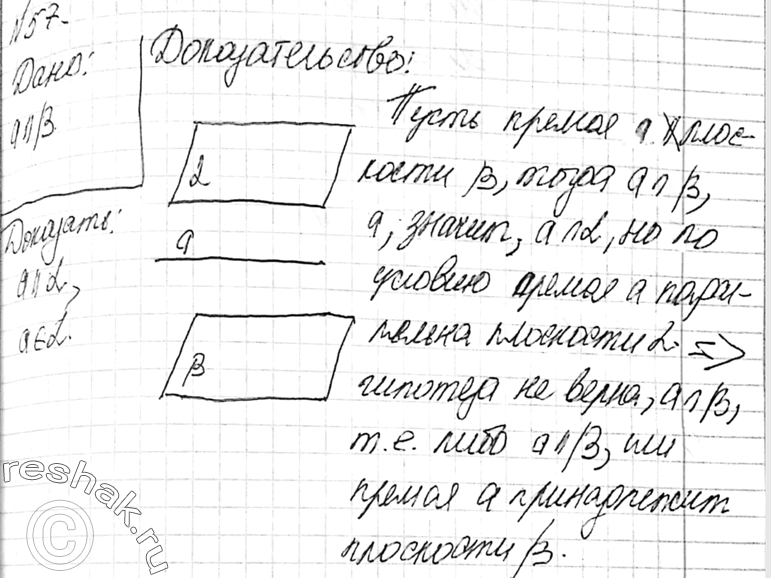 №57.
Дано:
a∩β
Доказать:
a∩α,
a∈α.
Доказательство:
α
a
β
Пусть прямая a ∦ плос-
кости β, тогда a∩β,
а, значит, a∩α, но по
условию прямая a парал-
лельна плоскости α =>
гипотеза не верна, a∩β,
т.е. либо a∩β, или
прямая a принадлежит
плоскости β.
© reshak.ru